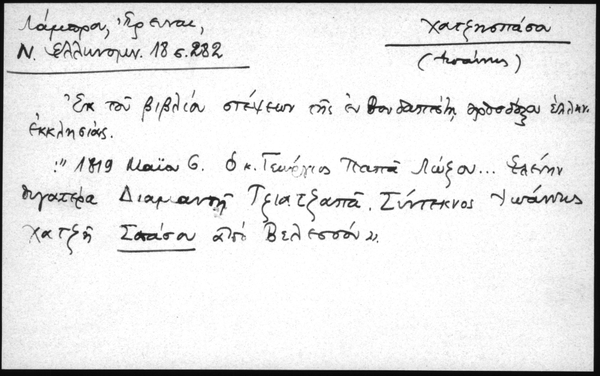 Λάμπρου, Ἔρευναι,
Ν. Ἑλληνομν. 18 σ. 282
Χατζησπάσα
(Ἰωάννης)
Ἐκ τοῦ βιβλίου στέψεων τῆς ἐν Βουδαπέστῃ ὀρθοδόξου ἑλλην.
ἐκκλησίας.
:" 1819 Μαΐου 6. Ὁ κ. Γεώργιος Παπᾶ Λώξου... Ἑλένην
θυγατέρα Διαμαντῆ Τζιατζαπᾶ. Σύντεκνος Ἰωάννης
Χατζῆ Σπάσου ἀπὸ Βελεσσόν".